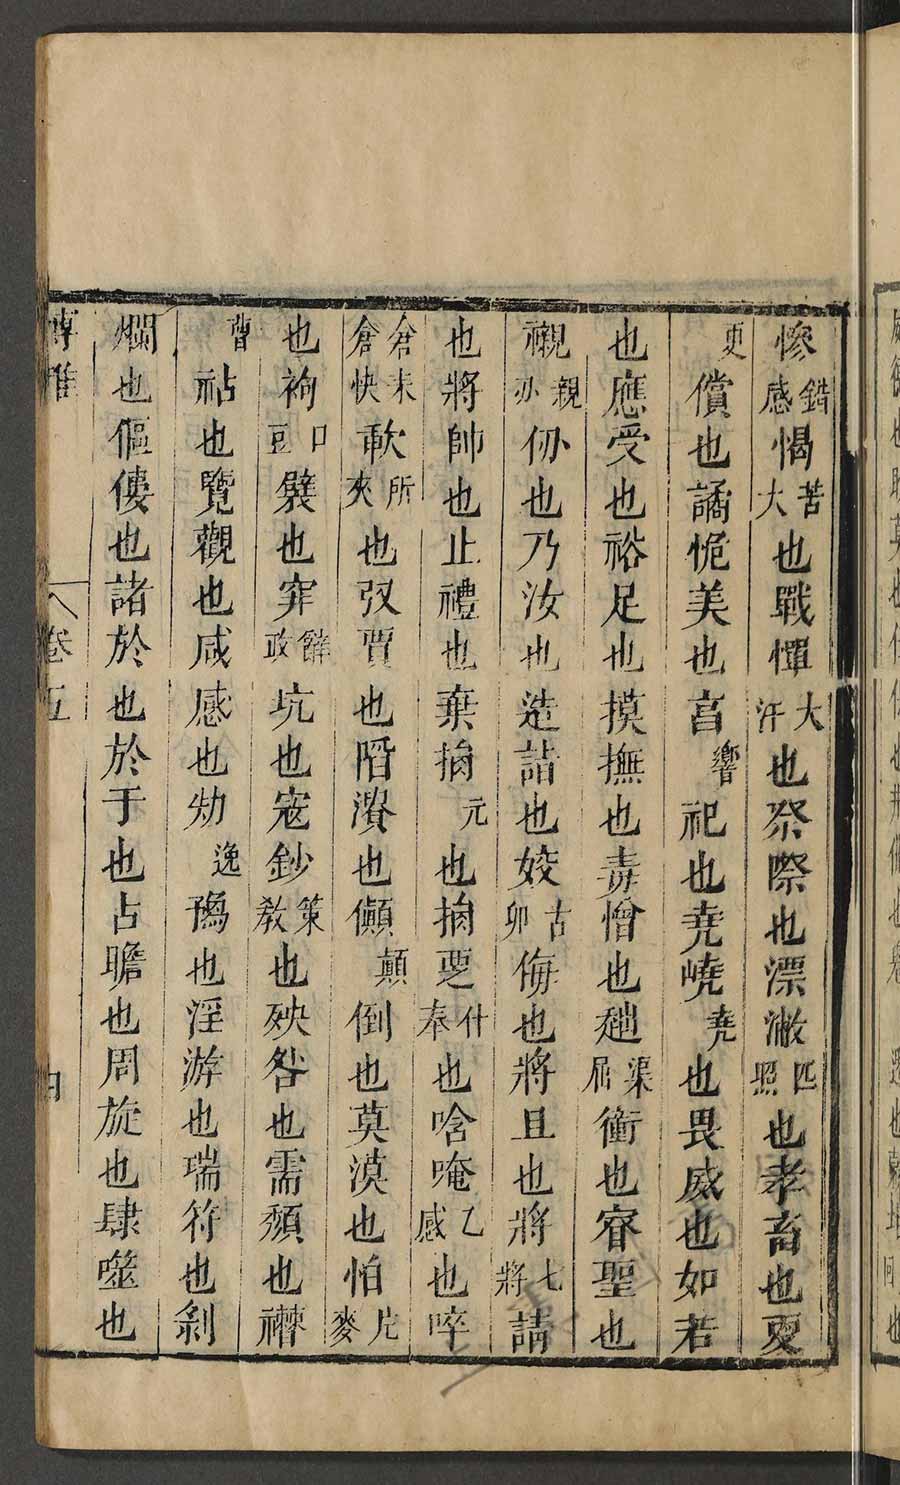 慘錯感愒苦大也戰憚大汗也祭際也漂潎匹照也孝畜也夏
更償也譎恑美也亯響祀也堯嶢堯也畏威也如若
也應受也裕足也摸撫也毒憎也趉渠屈衝也睿聖也
襯親刃仞也乃汝也造詣也姣古卯侮也將且也將七將請
也將帥也止禮也棄捐元也捐更什奉也唅唵乙感也啐
倉快倉末欶所夾也㢭賈也陷瀵也傎顛倒也莫漠也怕片麥
也袧口豆襞也穽辭政坑也寇鈔策教也殃咎也需頾也襻
曹祜也覽觀也咸感也劮逸䲣也淫游也瑞符也剝
爛也傴僂也諸於也於于也占瞻也周旋也肆噬也
博雅 卷五